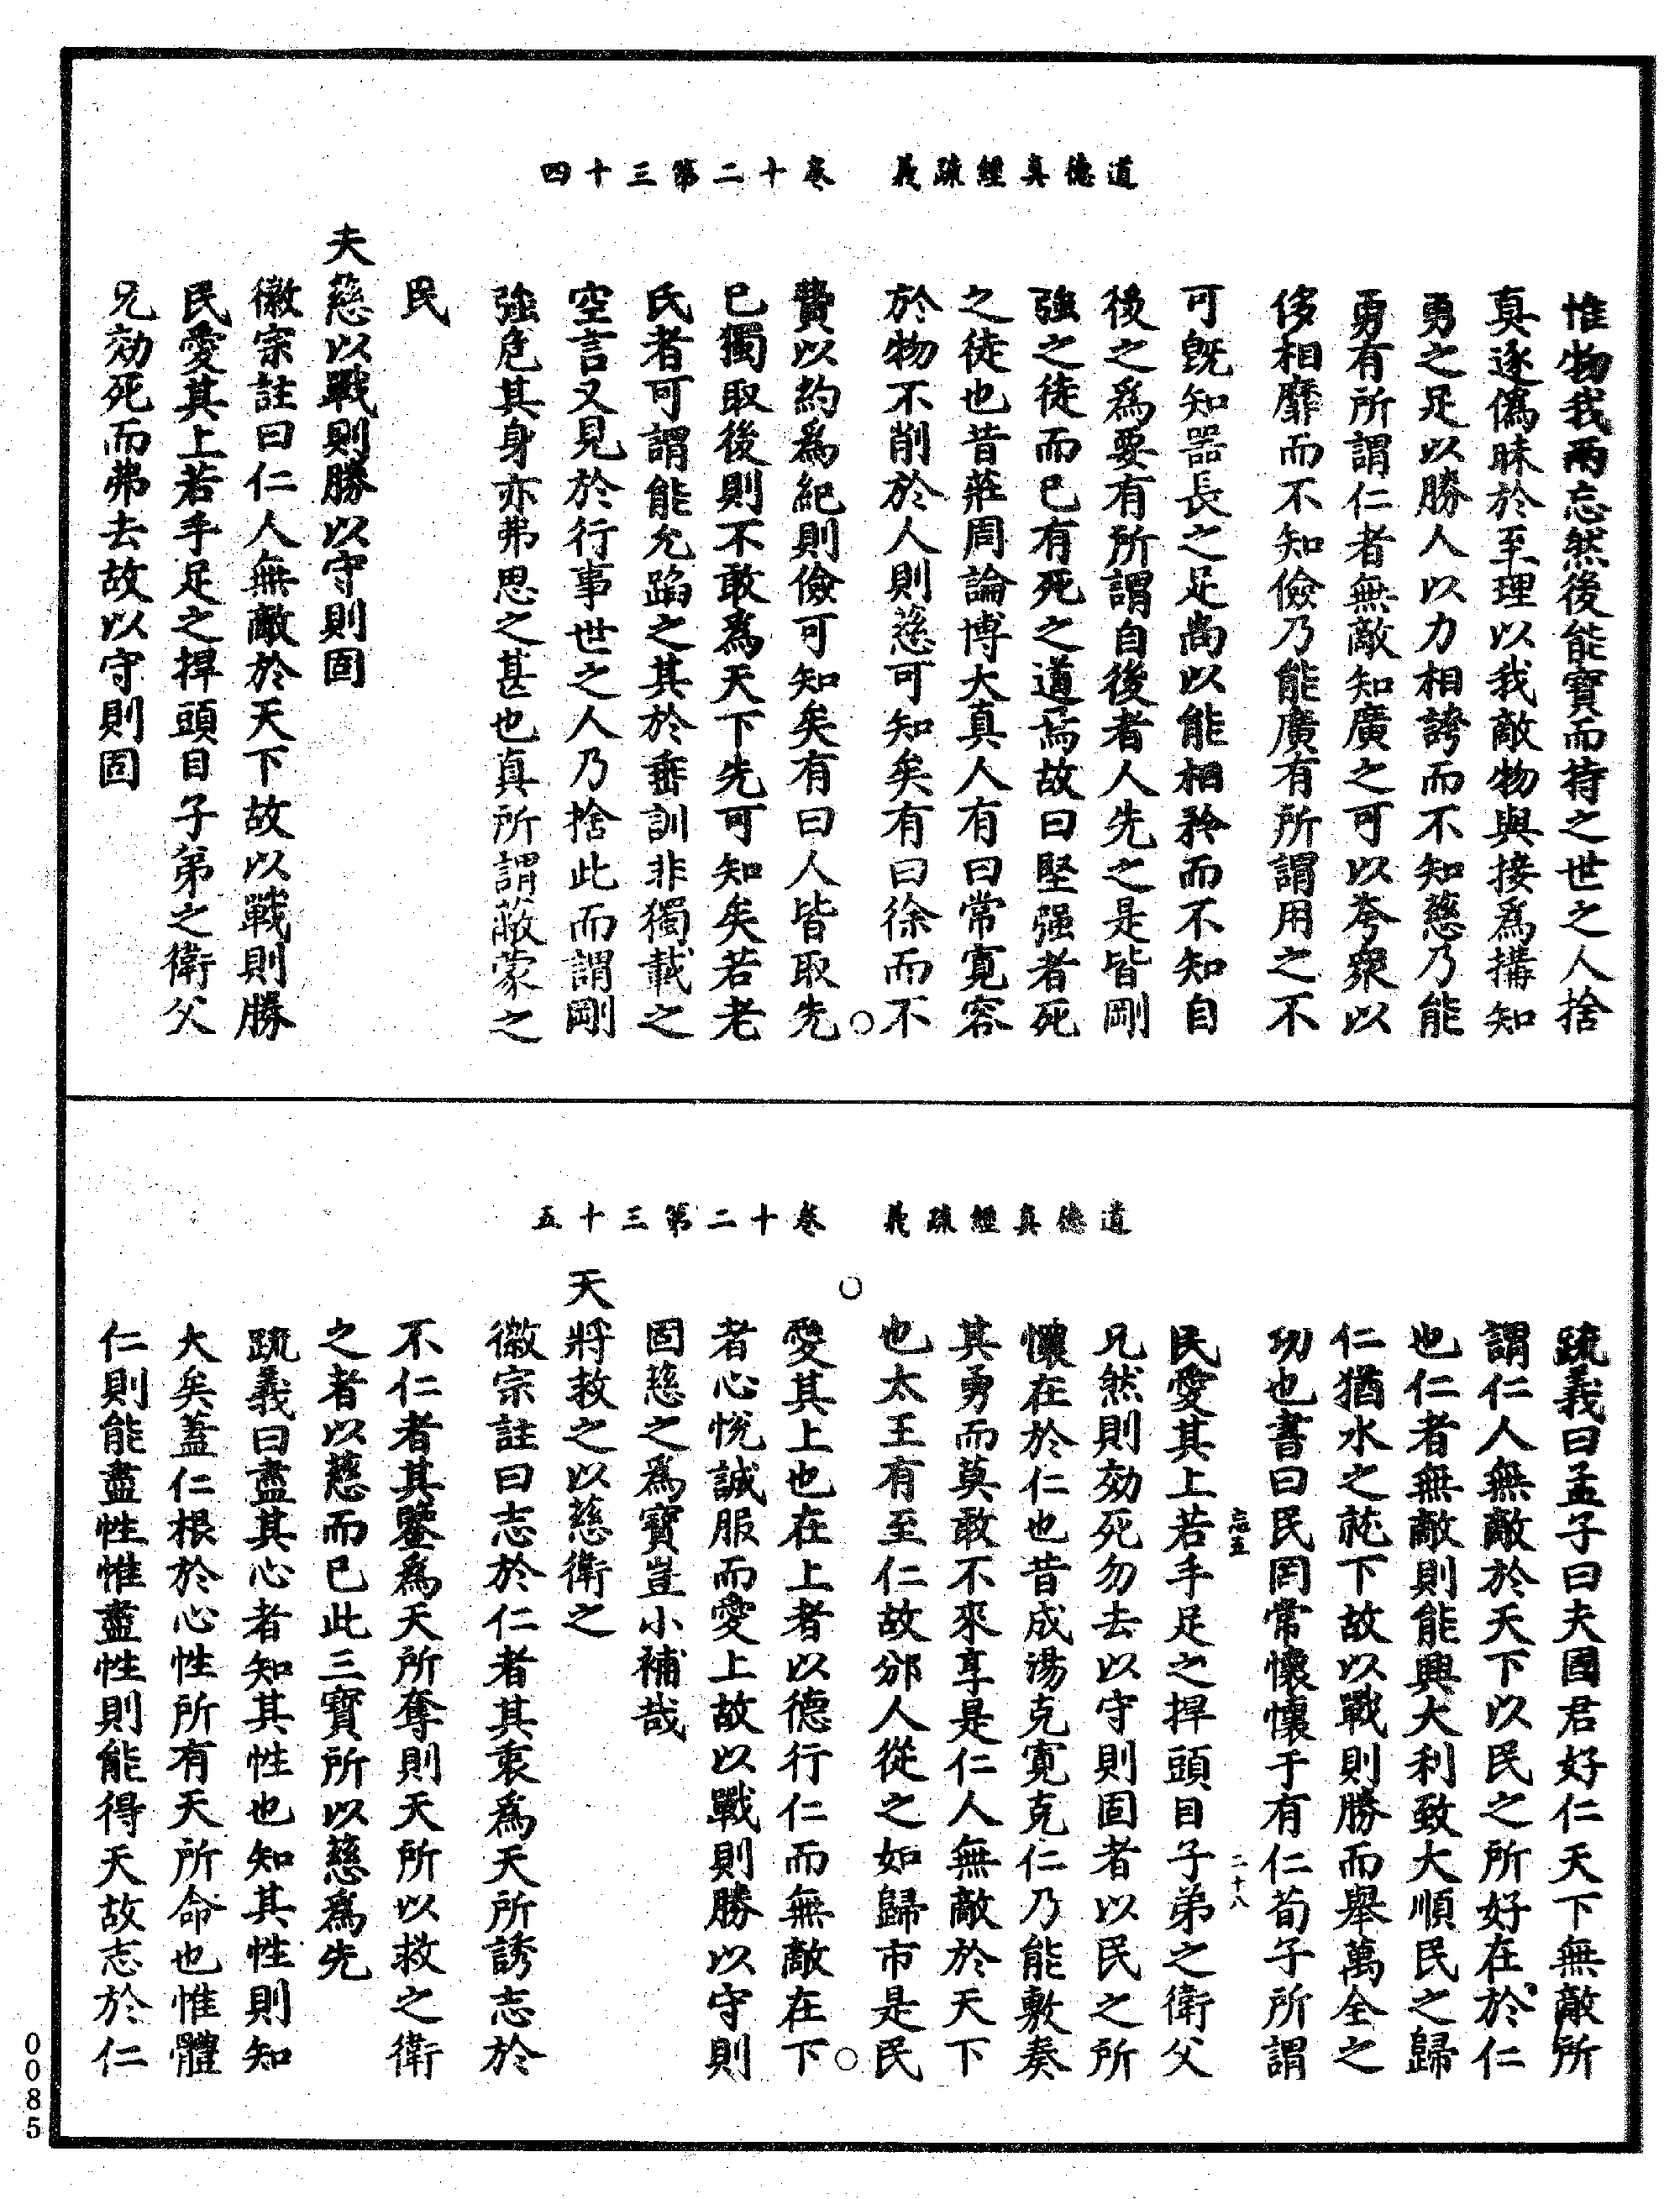 道德真經疏義　卷十二第三十四
惟物我兩忘然後能寶而持之世之人捨
真逐僞昧於至理以我敵物與接爲搆知
勇之足以勝人以力相誇而不知慈乃能
勇有所謂仁者無敵知廣之可以夸衆以
侈相靡而不知儉乃能廣有所謂用之不
可旣知器長之足尚以能相矜而不知自
後之爲要有所謂自後者人先之是皆剛
強之徒而已有死之道焉故曰堅强者死
之徒也昔莊周論博大真人有曰常寛容
於物不削於人則慈可知矣有曰徐而不
費以約爲紀則儉可知矣有曰人皆取先
已獨取後則不敢爲天下先可知矣若老
氏者可謂能允蹈之其於垂訓非獨載之
空言又見於行事世之人乃捨此而謂剛
強危其身亦弗思之甚也真所謂蔽蒙之
民
夫慈以戰則勝以守則固
徽宗註曰仁人無敵於天下故以戰則勝
民愛其上若手足之捍頭目子弟之衛父
兄効死而弗去故以守則固
道德真經疏義　卷十二第三十五
疏義曰孟子曰夫國君好仁天下無敵所
謂仁人無敵於天下以民之所好在於仁
也仁者無敵則能興大利致大順民之歸
仁猶水之就下故以戰則勝而舉萬全之
功也書曰民罔常懷懷于有仁荀子所謂
忘五　二十八
民愛其上若手足之捍頭目子弟之衛父
兄然則効死勿去以守則固者以民之所
懷在於仁也昔成湯克寛克仁乃能敷奏
其勇而莫敢不來享是仁人無敵於天下
也太王有至仁故邠人從之如歸市是民
愛其上也在上者以德行仁而無敵在下
者心悅誠服而愛上故以戰則勝以守則
固慈之爲寶豈小補哉
天將救之以慈衛之
徽宗註曰志於仁者其衷爲天所誘志於
不仁者其鑒爲天所奪則天所以救之衛
之者以慈而已此三寶所以慈爲先
疏義曰盡其心者知其性也知其性則知
大矣蓋仁根於心性所有天所命也惟體
仁則能盡性惟盡性則能得天故志於仁
0085